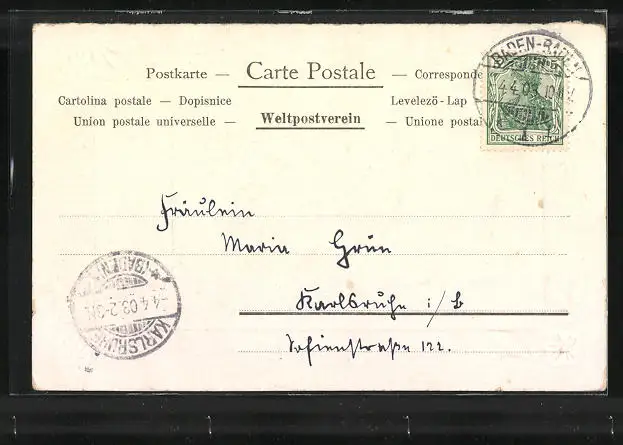 Postkarte — Carte Postale — Corresponde
Cartolina postale — Dopisnice Levelező-Lap
Union postale universelle — Weltpostverein — Unione postal
BADEN-BADEN
4.4.03.
DEUTSCHES REICH
Fräulein
Maria Grün
Karlsruhe i/b
Sofienstraße 122.
(BADEN)
-4.4.03.2-3N.
KARLSRUHE